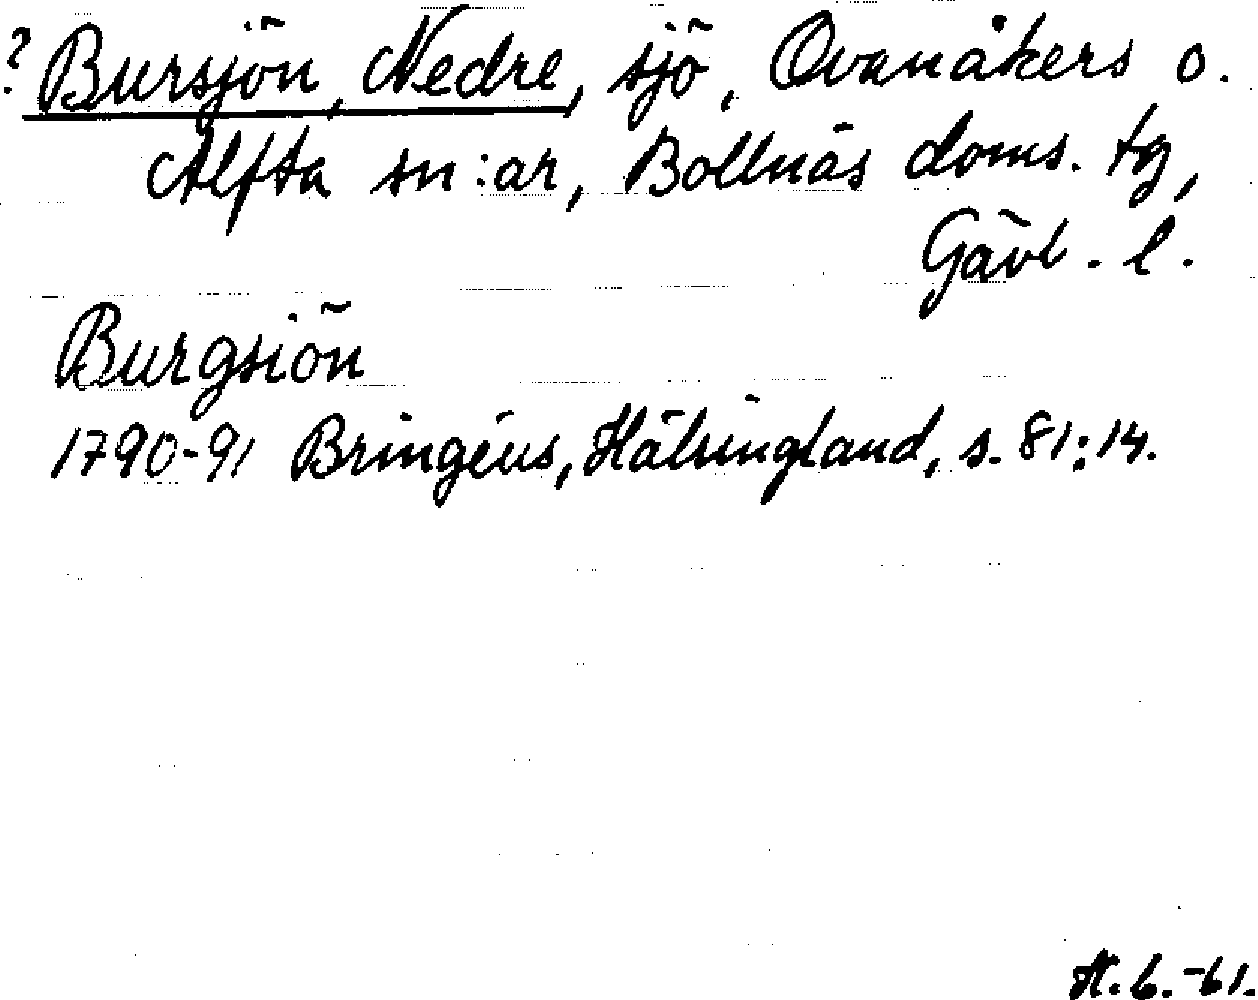 ? Bursjön, Nedre, sjö, Ovanåkers o.
Alfta sn:ar, Bollnäs doms. tg,
Gävl. l.
Burgsiön
1790-91 Bringéus, Hälsingland, s. 81:14.
H. 6.-61.